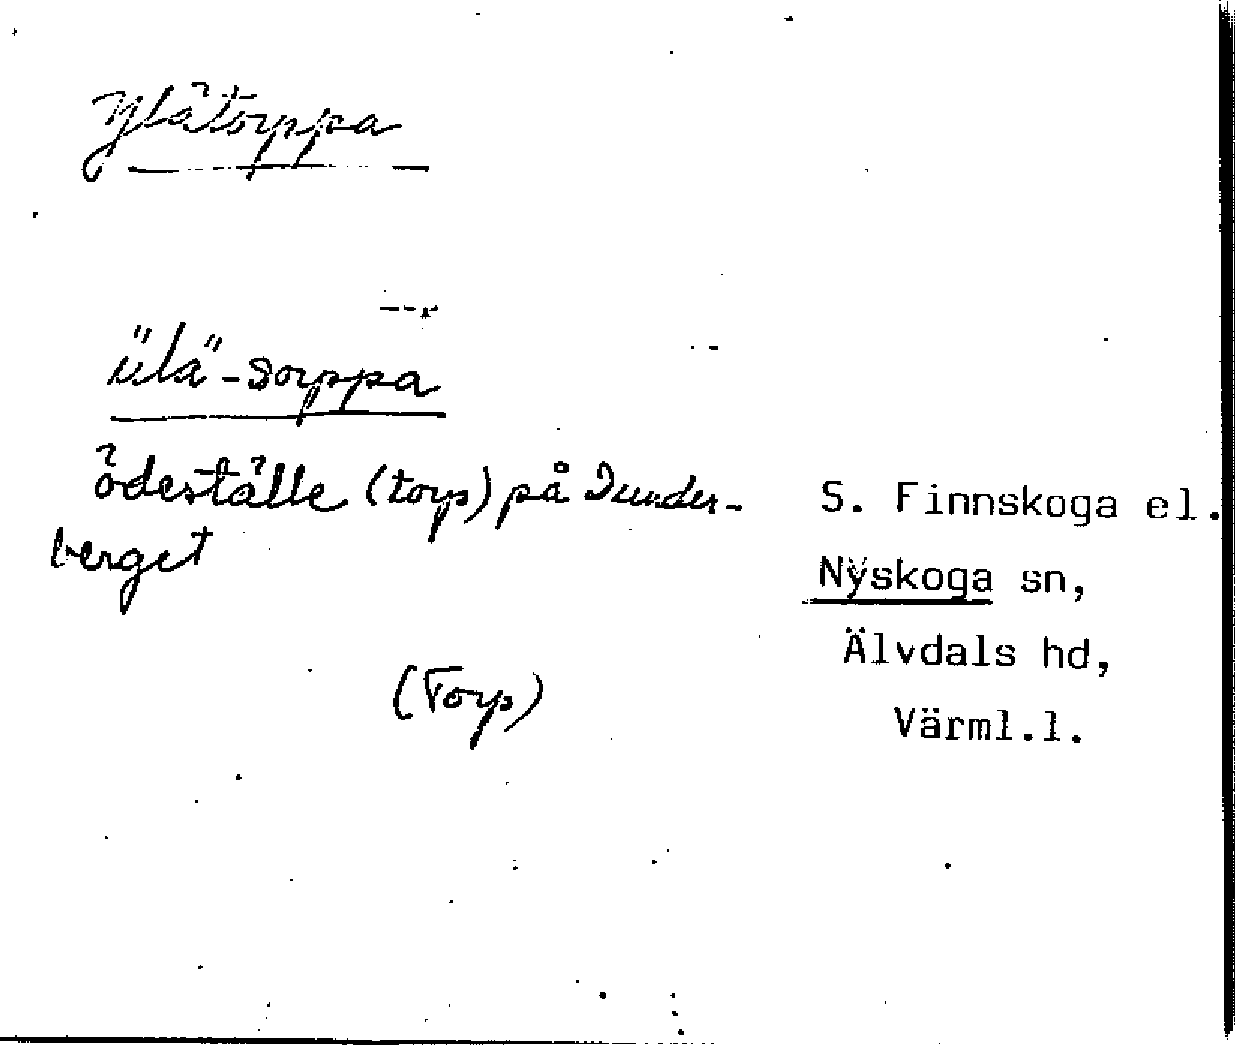 Ylätorppa
ülä-sorppa
ödeställe (torp) på Dunder-
berget
(Torp)
S. Finnskoga el.
Nyskoga sn,
Älvdals hd,
Värml.l.